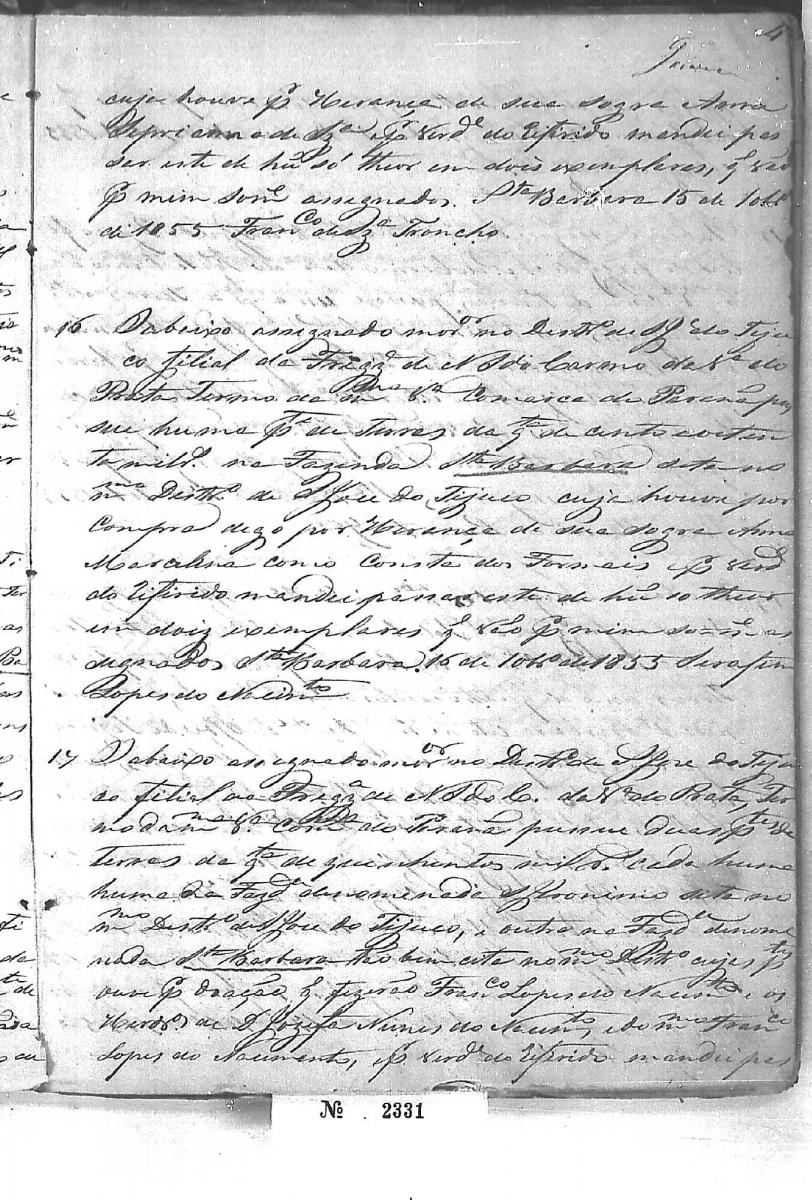 4
cuja houve pr Herança de sua sogra Anna
Siprianna de Sza e pr verde do referido mandei pas
sar este de hũ só theor em dois exemplares, q vão
pr mim somte assignados. Sta Barbara 15 de 10bro
de 1855 Franco de Sza Troncho
16 O abaixo assignado mor no Destro de S Je do Teju
co filial da Fregza de N S do Carmo da Va do
Prata Termo da ma Va Comarca do Paraná pos
sue huma pte de Terras da qta de cento e oiten
ta mil rs na Fazenda Sta Barbara sita no
mmo Destro de S Joze do Tejuco cuja houve por
compra digo por Herança de sua sogra Anna
Marcelina como consta dos Formais e pr verde
do referido mandei passar este de hũ só theor
em doiz exemplares q vão pr mim som-te as
signados Sta Barbara 16 de 10bro de 1855 Serafim
Lopes do Nacimto
17 O abaixo assignado mor no Destro de S Joze do Teju
co filial da Fregza de N S do C. da Va do Prata, Ter
mo da ma Va Comca do Paraná possue duas ptes de
terras da qta de quinhentos mil rs cada huma
huma na Fazda denomenada S Jeronimo sita no
mmo Destro de S Joze do Tejuco, e outra na Fazda denome
nada Sta Barbara tão bem sita no mmo Destro cujas ptes
ouve pr doação q fizerão Franco Lopes do Nacimto e os
Herdros de D Jozefa Nunes do Nacimto, e do mmo Franco
Lopes do Nacimento, e pr verde do referido mandei pas
No 2331